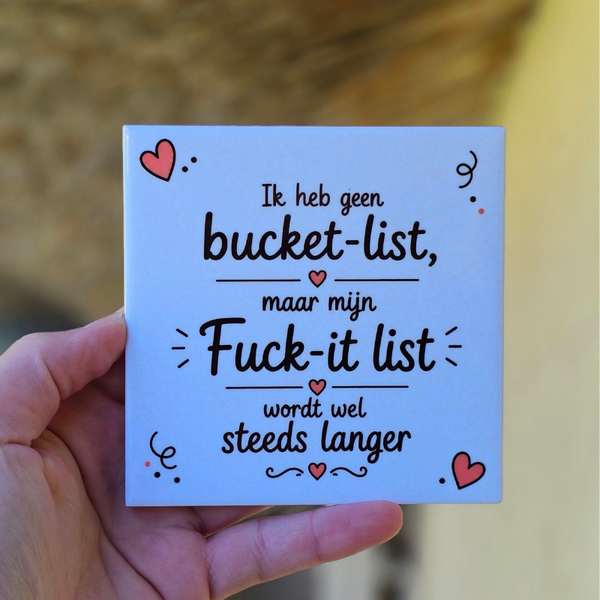 Ik heb geen
bucket-list,
maar mijn
Fuck-it list
wordt wel
steeds langer